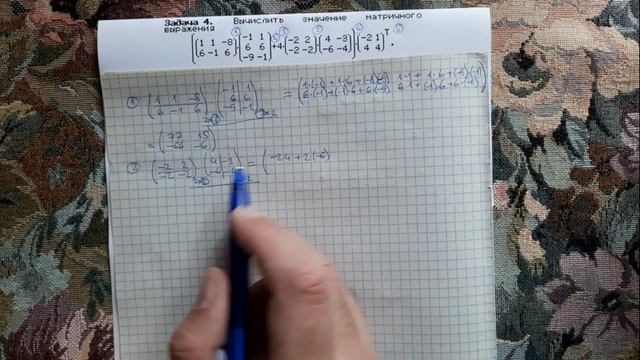 Задача 4. Вычислить значение матричного
выражения
[(1 1 -8; 6 -1 6)(-1 1; 6 6; -9 -1)+4(-2 2; -2 -2)(4 -3; -6 -4)(-2 1; 4 4)]ᵀ.
① (1 1 -8; 6 -1 6) · (-1 1; 6 6; -9 -1) = (1·(-1)+1·6+(-8)(-9) 1·1+1·6+(-8)·(-1); 6·(-1)+(-1)·6+6·(-9) 6·1+(-1)·6+6·(-1))
= (77 15; -66 -6)
② (-2 2; -2 -2) · (4 -3; -6 -4) = (-2·4+2·(-6)